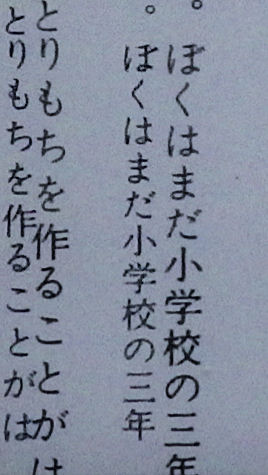 。ぼくはまだ小学校の三年
。ぼくはまだ小学校の三年
とりもちを作ることがは
とりもちを作ることがは